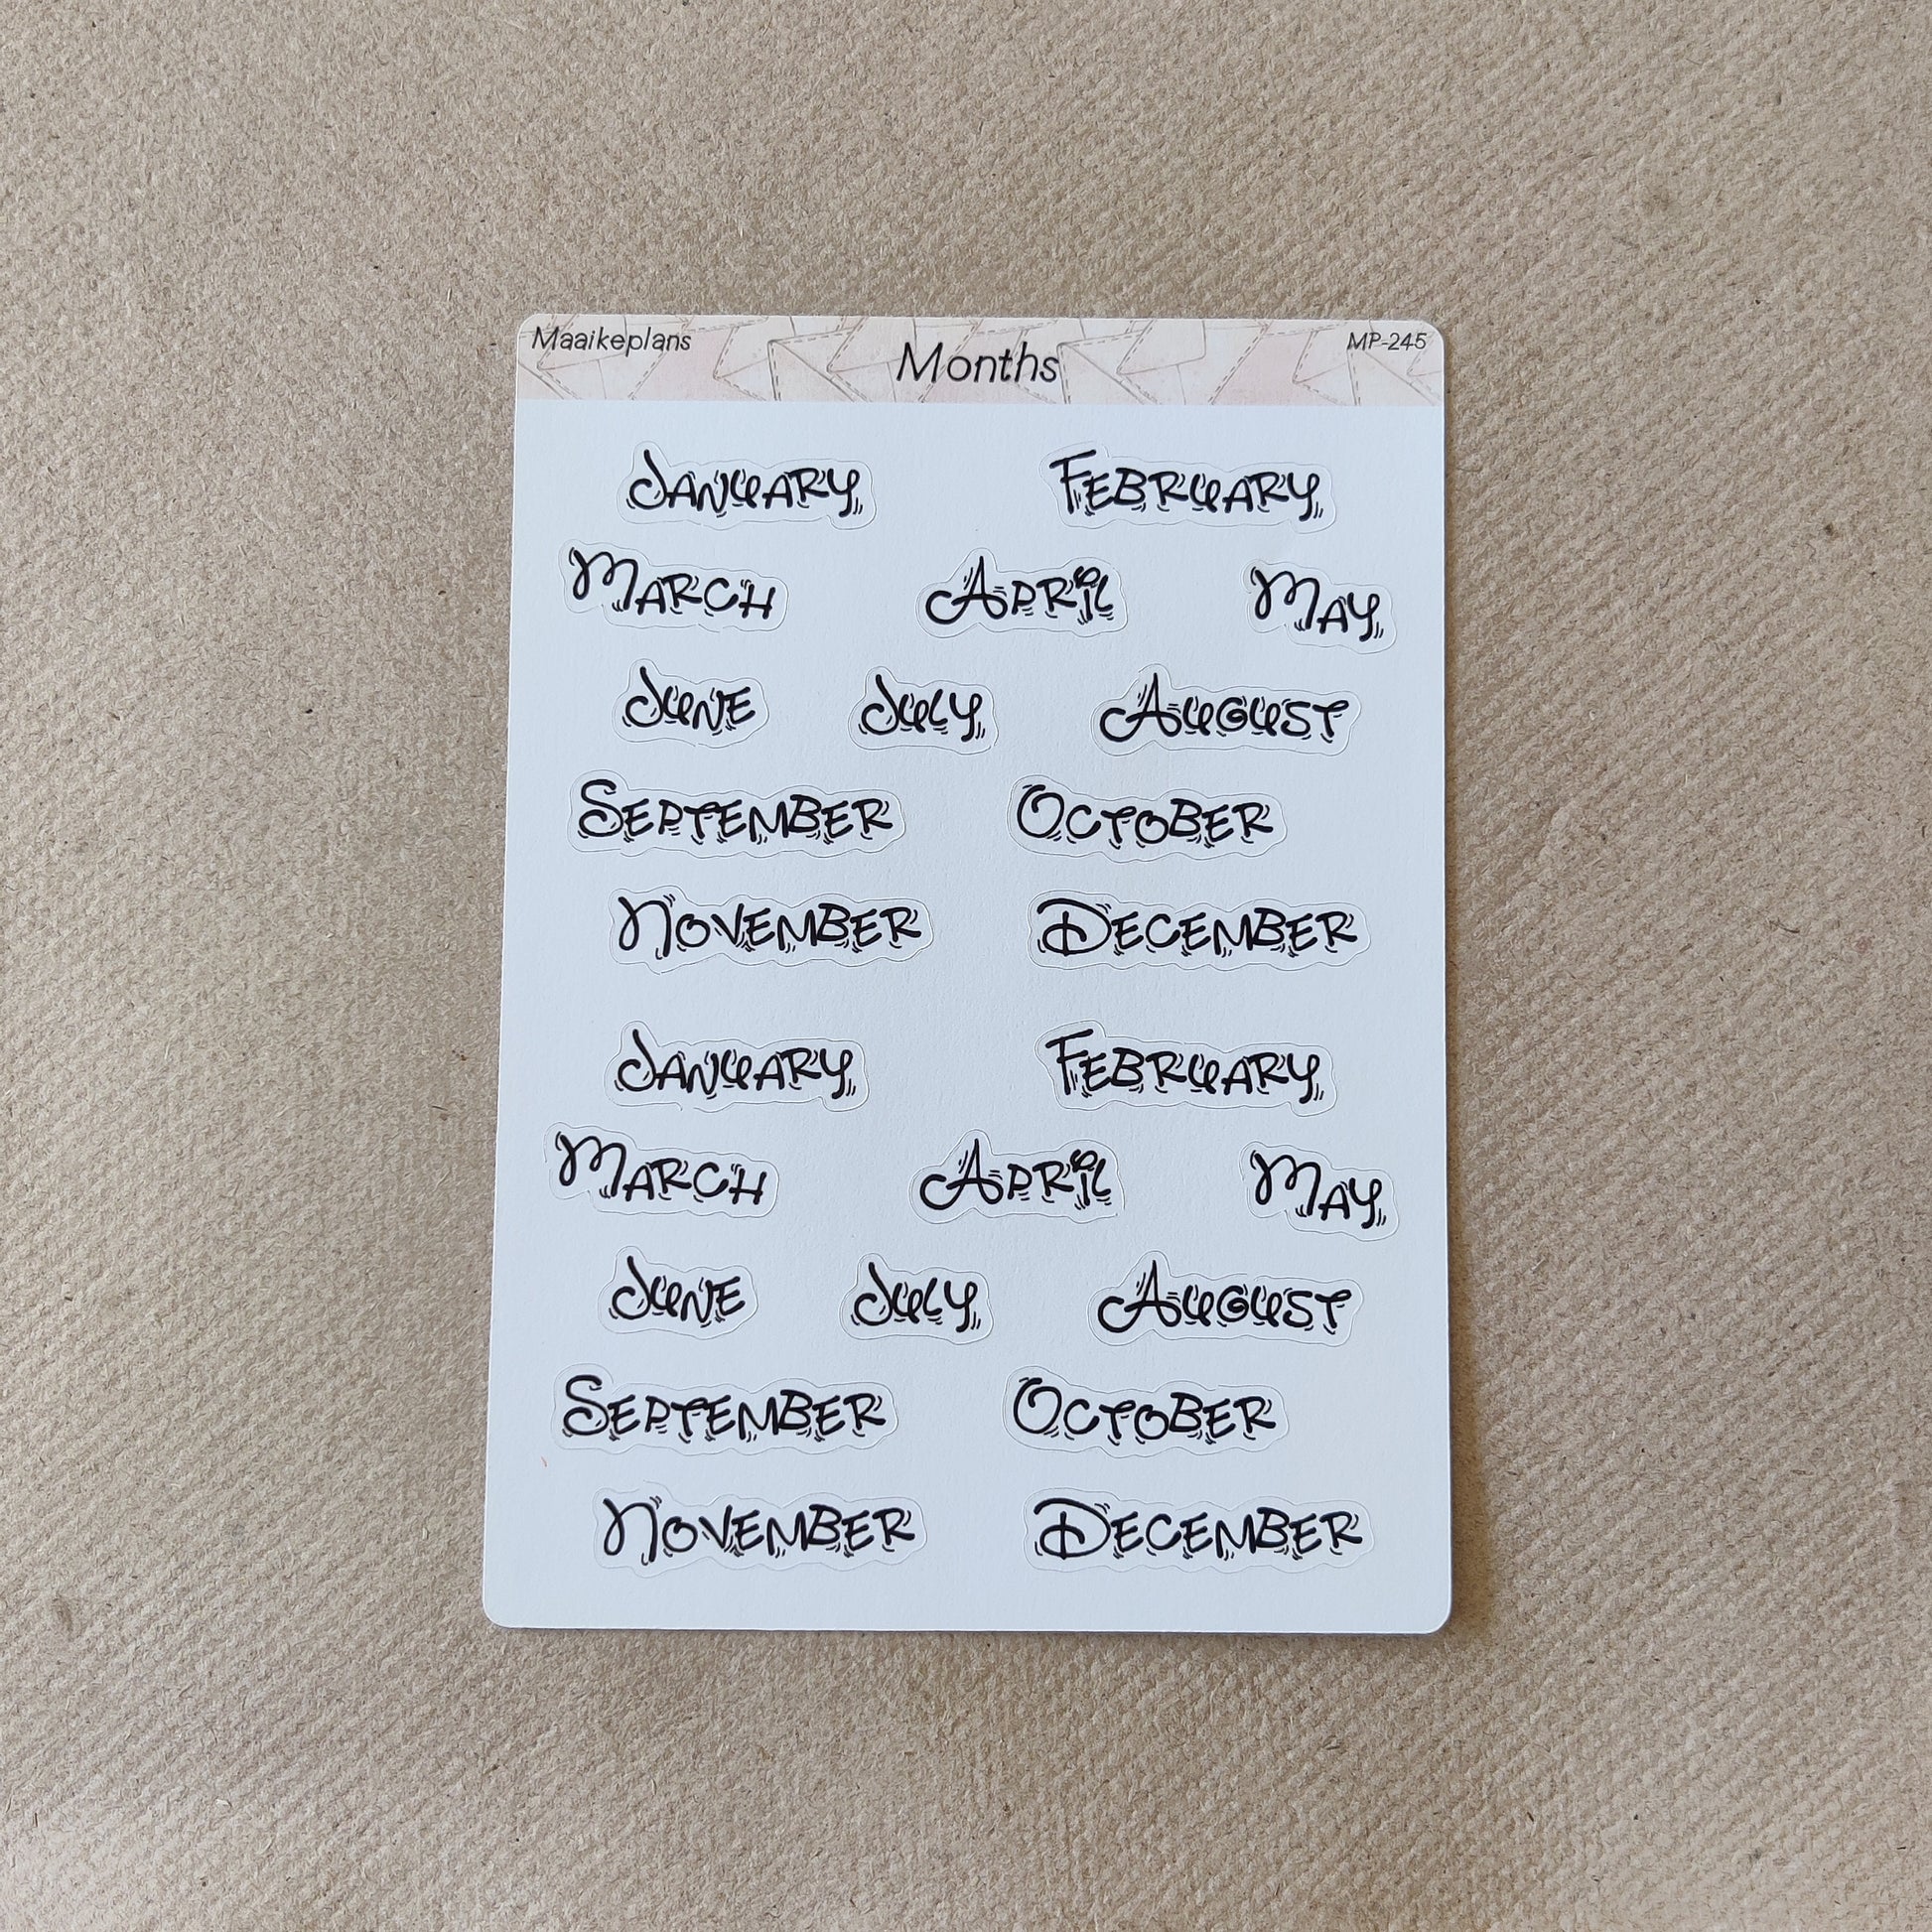 Maaikeplans Months MP-245
January February
March April May
June July August
September October
November December
January February
March April May
June July August
September October
November December